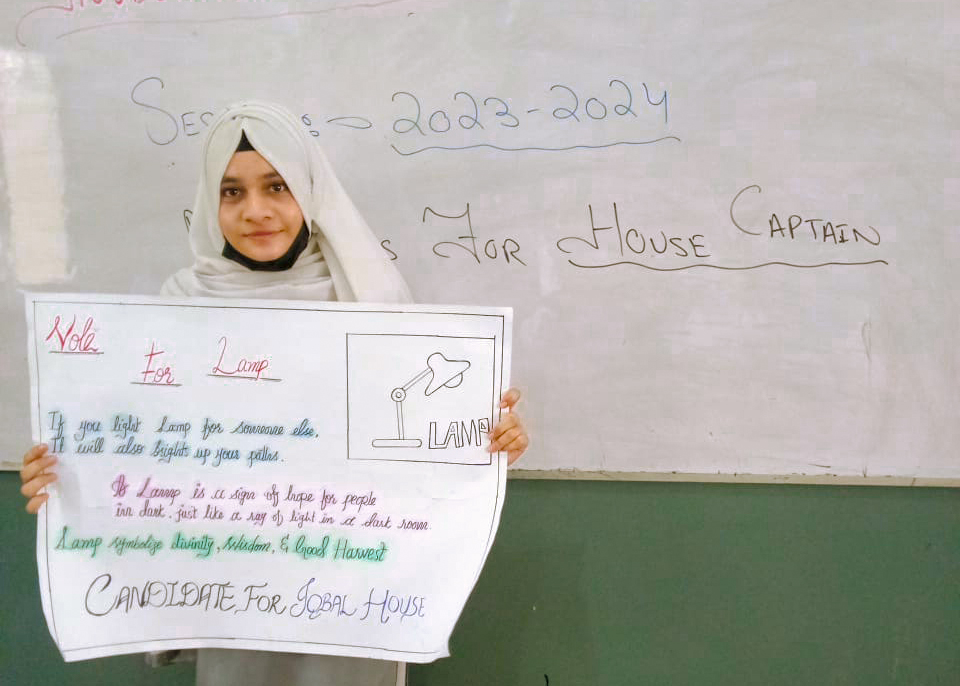 2023-2024
For House Captain
Vote
For Lamp
LAMP
If you light Lamp for someone else,
It will also brights up your paths.
A Lamp is a sign of hope for people
in dark, just like a ray of light in a dark room
Lamp symbolize divinity, wisdom, & Good Harvest
CANDIDATE FOR IQBAL HOUSE